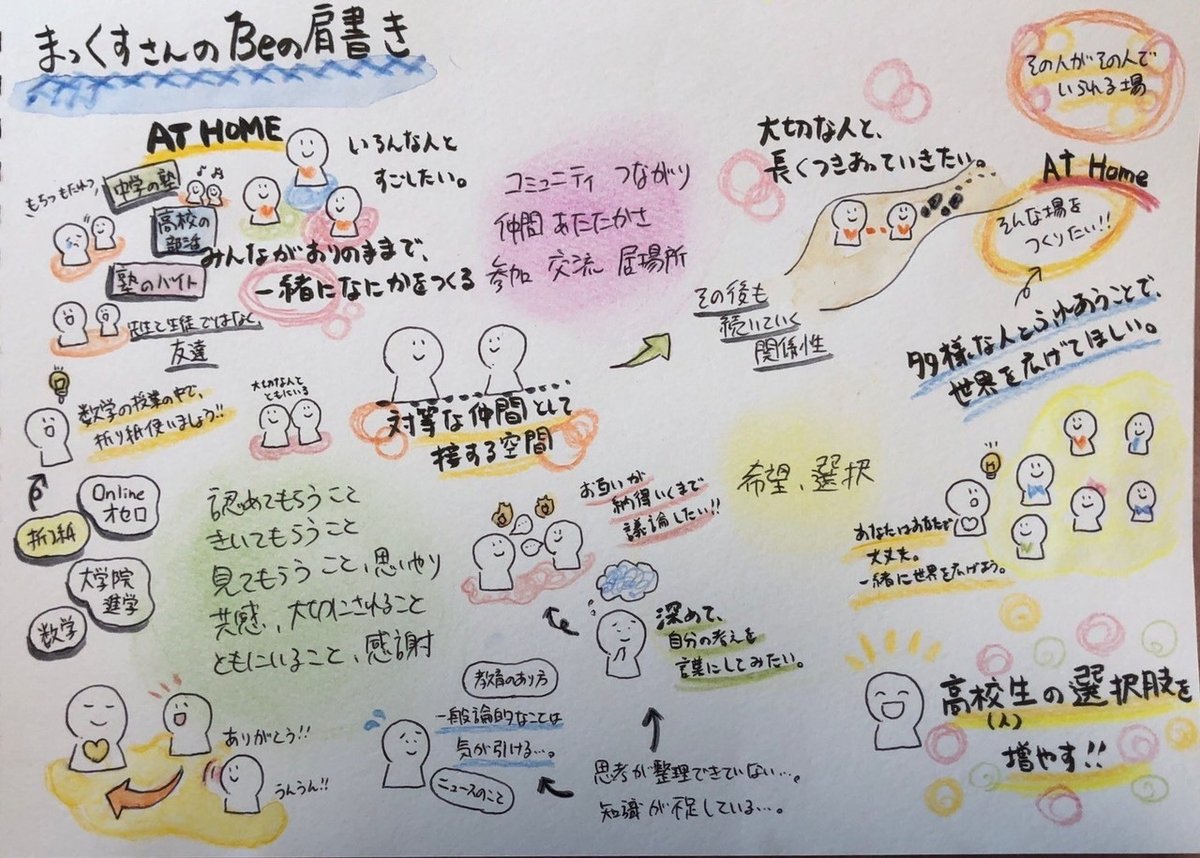 まっくすさんのBeの肩書き
AT HOME
もちつもたれつ
中学の塾
高校の
部活
塾のバイト
先生と生徒ではなく
友達
いろんな人と
すごしたい。
みんながありのままで、
一緒になにかをつくる
コミュニティ つながり
仲間 あたたかさ
参加 交流 居場所
大切な人と、
長くつきあっていきたい。
その人がその人で
いられる場
At Home
そんな場を
つくりたい!!
その後も
続いていく
関係性
多様な人とふれあうことで、
世界を広げてほしい。
数学の授業の中で、
折り紙使いましょう!!
大切な人と
ともにいる
対等な仲間として
接する空間
Online
オセロ
折り紙
大学院
進学
数学
認めてもらうこと
きいてもらうこと
見てもらうこと、思いやり
共感、大切にされること
ともにいること、感謝
お互いが
納得いくまで
議論したい!!
希望、選択
あなたはあなたで
大丈夫。
一緒に世界を広げよう。
深めて、
自分の考えを
言葉にしてみたい。
ありがとう!!
うんうん!!
教育のあり方
一般論的なことは
気が引ける…。
ニュースのこと
思考が整理できていない…。
知識が不足している…。
高校生の選択肢を
(人)
増やす!!